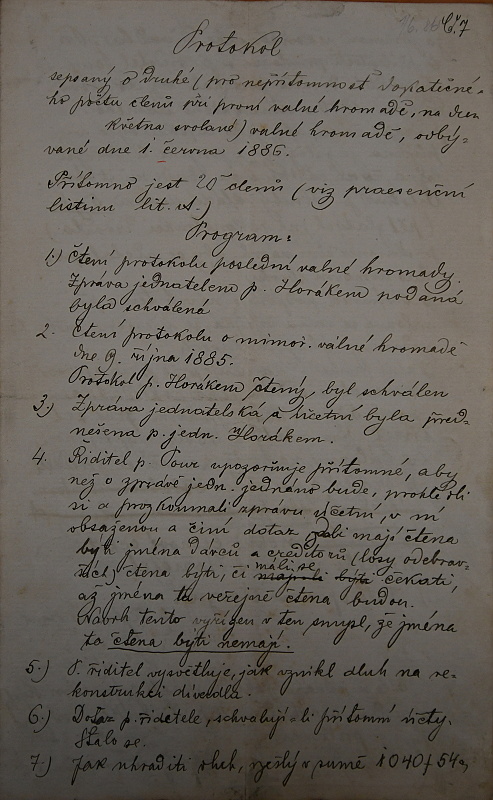 Č. 7
Protokol
sepsaný o druhé (pro nepřítomnost dostatečné-
ho počtu členů při první valné hromadě, na den
května svolané) valné hromadě, odbý-
vané dne 1. června 1886.
Přítomno jest 20 členů (viz praesenční
listinu lit. A.)
Program:
1.) Čtení protokolu poslední valné hromady.
Zpráva jednatelem p. Horákem podaná
byla schválená
2. Čtení protokolu o mimoř. válné hromadě
dne 9. října 1885.
Protokol p. Horákem čtený, byl schválen
3.) Zpráva jednatelská a účetní byla před-
nešena p. jedn. Horákem.
4. Řiditel p. Pour upozorňuje přítomné, aby
než o zprávě jedn. jednáno bude, prohledli
si a prozkoumali zprávu účetní, v ní
obsaženou a činí dotaz zdali mají čtena
býti jména dárců a creditorů (losy odebrav-
ších) čtena býti, či málí se čekati,
až jména ta veřejně čtena budou.
Návrh tento vyřízen v ten smysl, že jména
ta čtena býti nemají.
5.) P. řiditel vysvětluje, jak vznikl dluh na re-
konstrukci divadla.
6.) Dotaz p. řiditele, schvalují-li přítomní účty.
Stalo se.
7.) Jak uhraditi dluh, vzešlý v sumě 1040 f 54